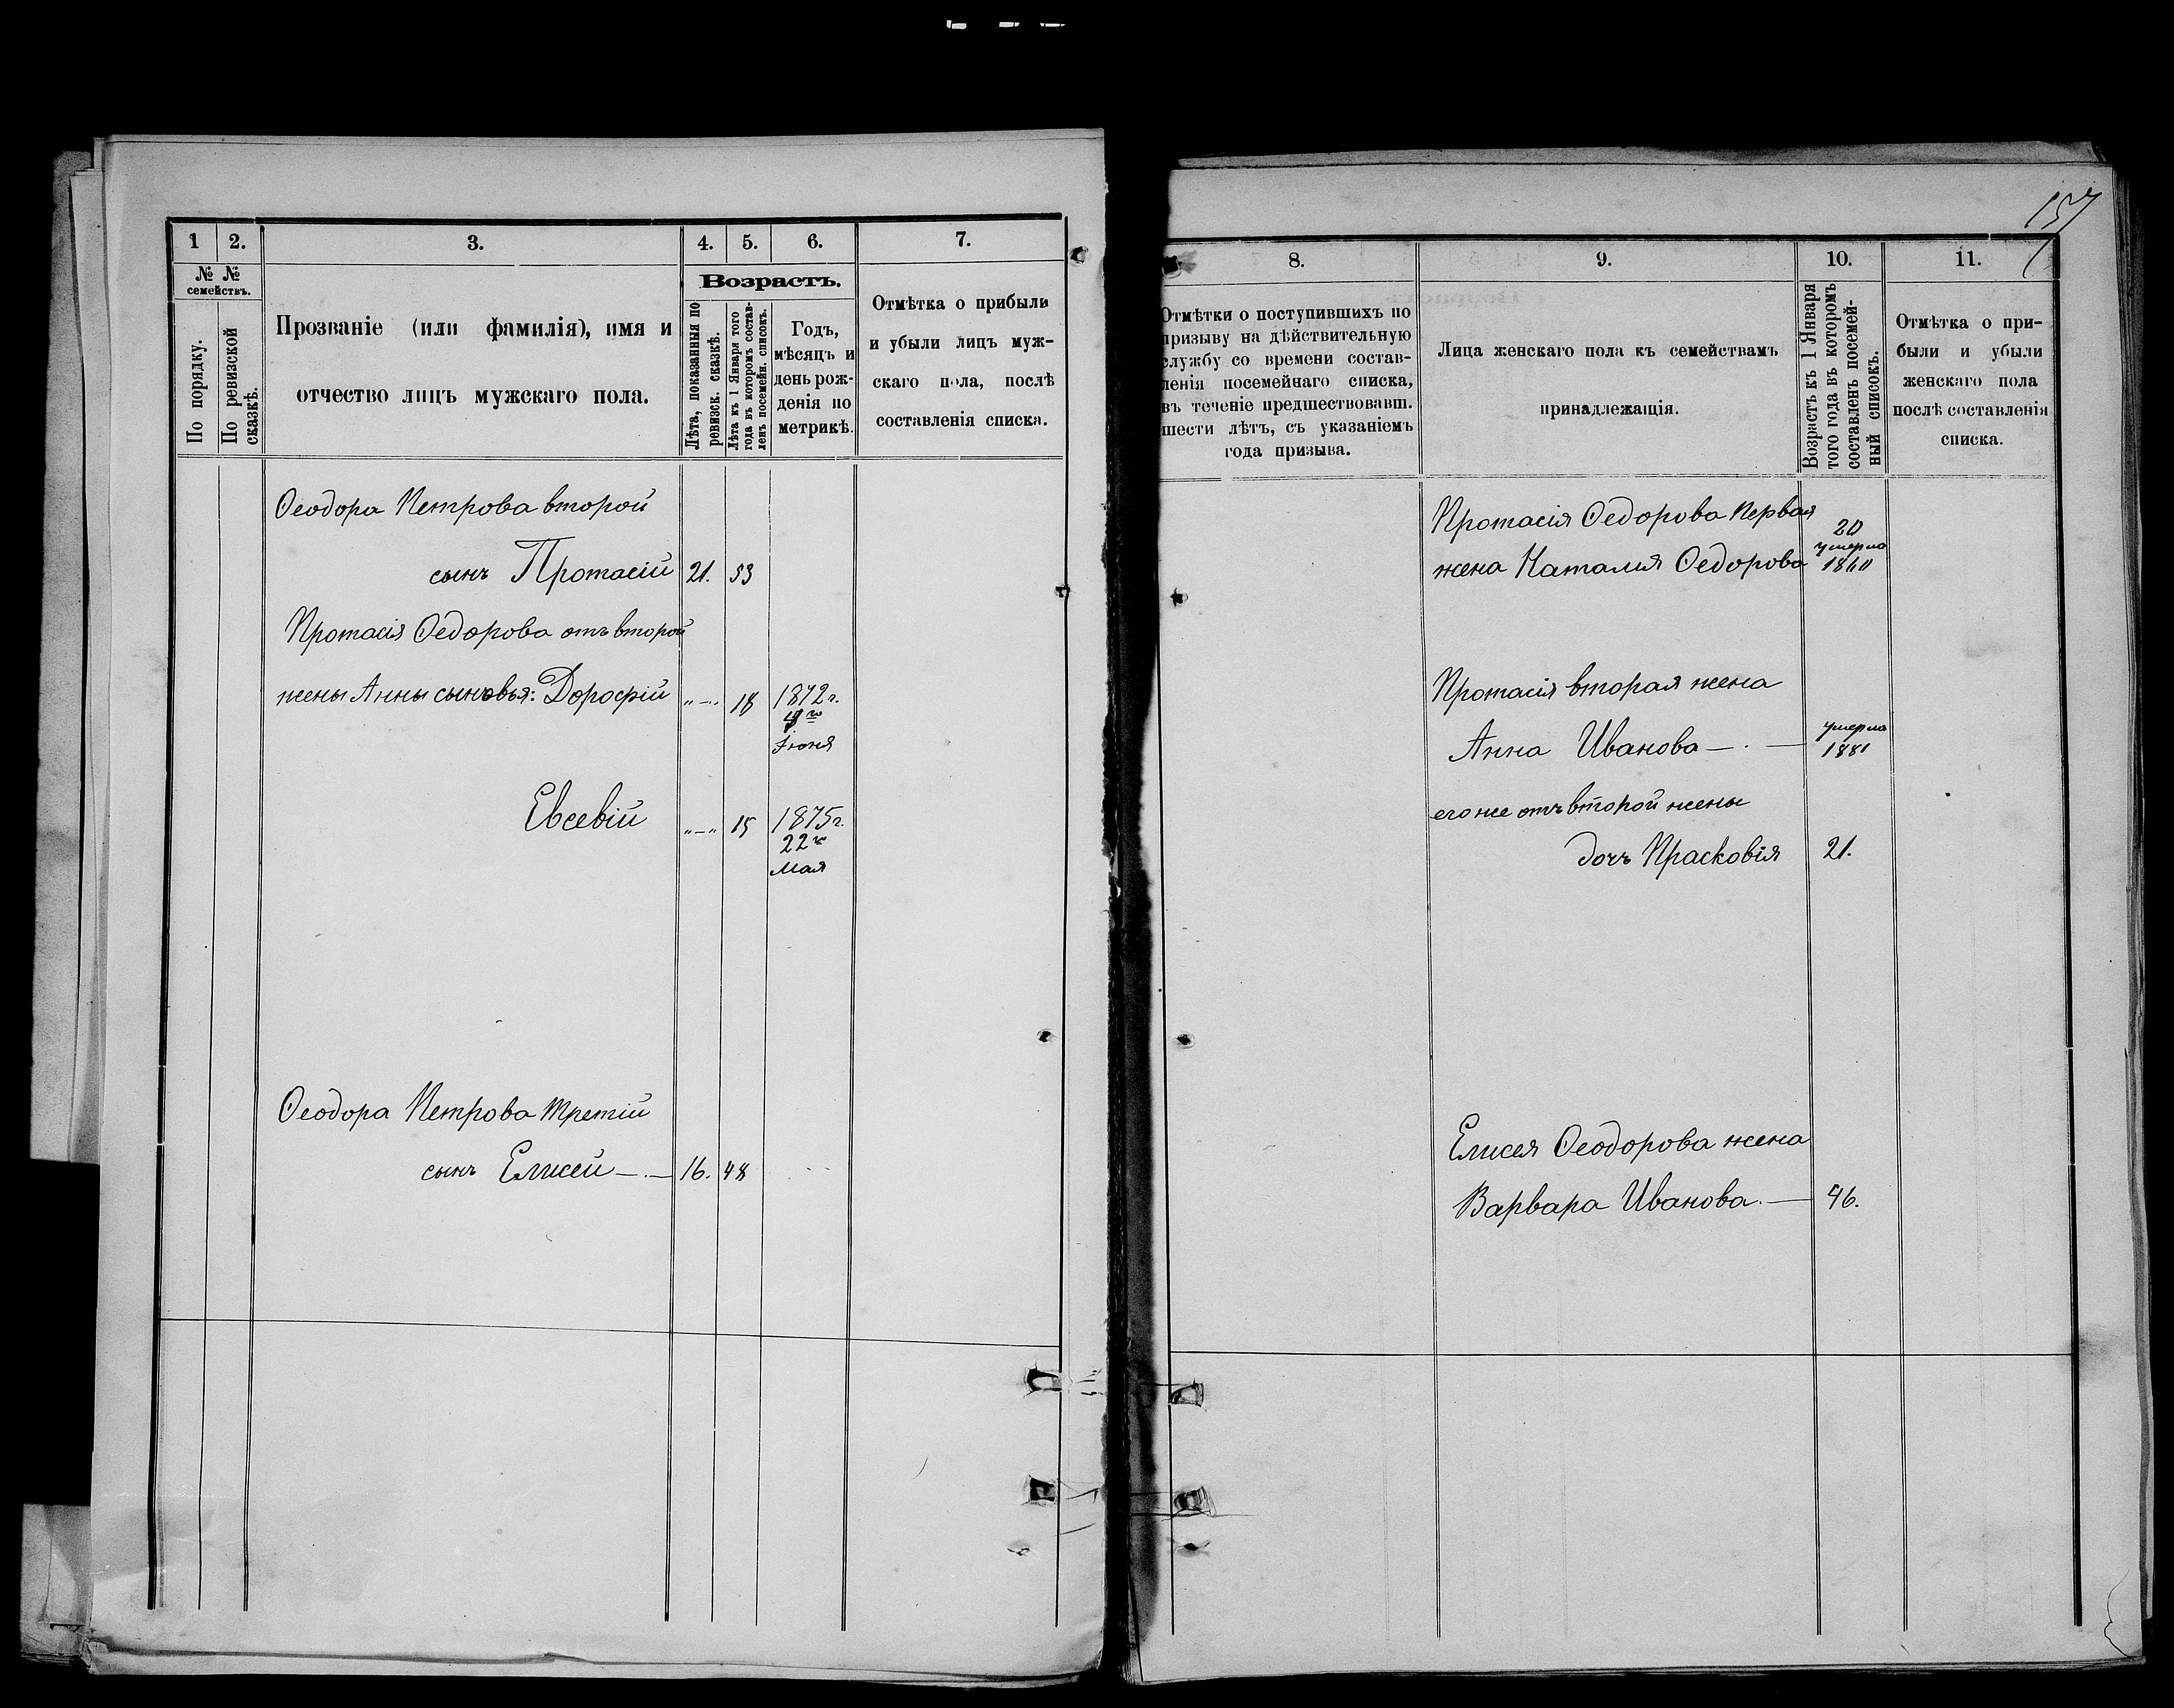 1 2. 3. 4. 5. 6. 7.
№ № семействъ.
По порядку.
По ревизской сказкѣ.
Прозваніе (или фамилія), имя и
отчество лицъ мужскаго пола.
Возрастъ.
Лѣта, показанныя по
ревизск. сказкѣ.
Лѣта къ 1 Января того
года въ которомъ состав-
ленъ посемейн. списокъ.
Годъ,
мѣсяцъ и
день рож-
денія по
метрикѣ.
Отмѣтка о прибыли
и убыли лицъ муж-
скаго пола, послѣ
составленія списка.
Ѳеодора Петрова второй
сынъ Протасій 21. 53
Протасія Ѳедорова отъ второй
жены Анны сыновья: Дорофій „—„ 18 1872 г.
Іюня
Евсевій „—„ 15 1875 г.
22 го
Мая
Ѳеодора Петрова третій
сынъ Елисей —.— 16. 48
157
8. 9. 10. 11.
Отмѣтки о поступившихъ по
призыву на дѣйствительную
службу со времени состав-
ленія посемейнаго списка,
въ теченіе предшествовавш.
шести лѣтъ, съ указаніемъ
года призыва.
Лица женскаго пола къ семействамъ
принадлежащія.
Возрастъ къ 1 Января
того года въ которомъ
составленъ посемей-
ный списокъ.
Отмѣтка о при-
были и убыли
женскаго пола
послѣ составленія
списка.
Протасія Ѳедорова первая
20
жена Наталия Ѳедорова умерла 1860
Протасія вторая жена
Анна Иванова —.— умерла 1881
его же отъ второй жены
дочъ Прасковія 21.
Елисея Ѳеодорова жена
Варвара Иванова.— 46.